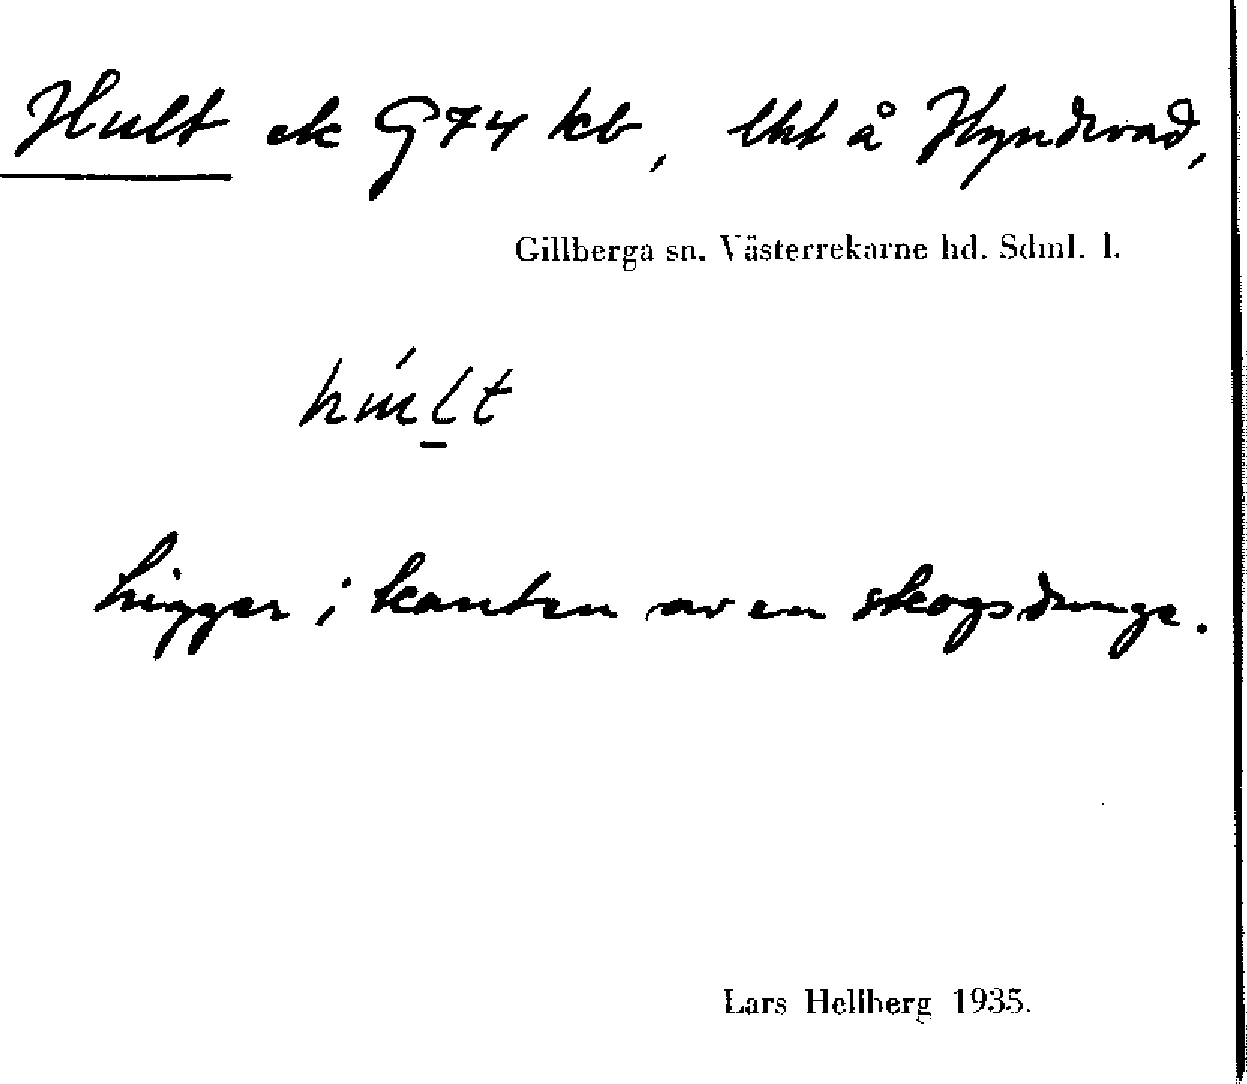 Hult ek G74 kb, lht å Hyndevad,
Gillberga sn. Västerrekarne hd. Sdml. l.
Ligger i kanten av en skogsdunge.
Lars Hellberg 1935.